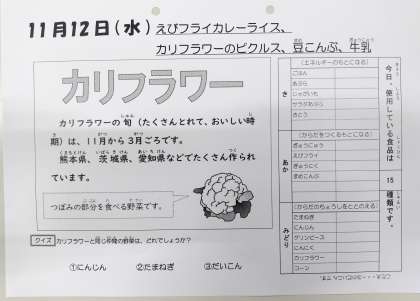 11月12日(水) えびフライカレーライス、
カリフラワーのピクルス、豆こんぶ、牛乳
カリフラワー
カリフラワーの旬(たくさんとれて、おいしい時
期)は、11月から3月ごろです。
熊本県、茨城県、愛知県などでたくさん作られ
ています。
つぼみの部分を食べる野菜です。
クイズ カリフラワーと同じ仲間の野菜は、どれでしょうか?
①にんじん ②たまねぎ ③だいこん
今日、使用している食品は 15 種類です。
き
(エネルギーのもとになる)
ごはん
あぶら
じゃがいも
サラダあぶら
さとう
あか
(からだをつくるもとになる)
ぎゅうにゅう
えびフライ
ぎゅうにく
まめこんぶ
みどり
(からだのちょうしをととのえる)
たまねぎ
にんじん
グリンピース
にんにく
カリフラワー
コーン